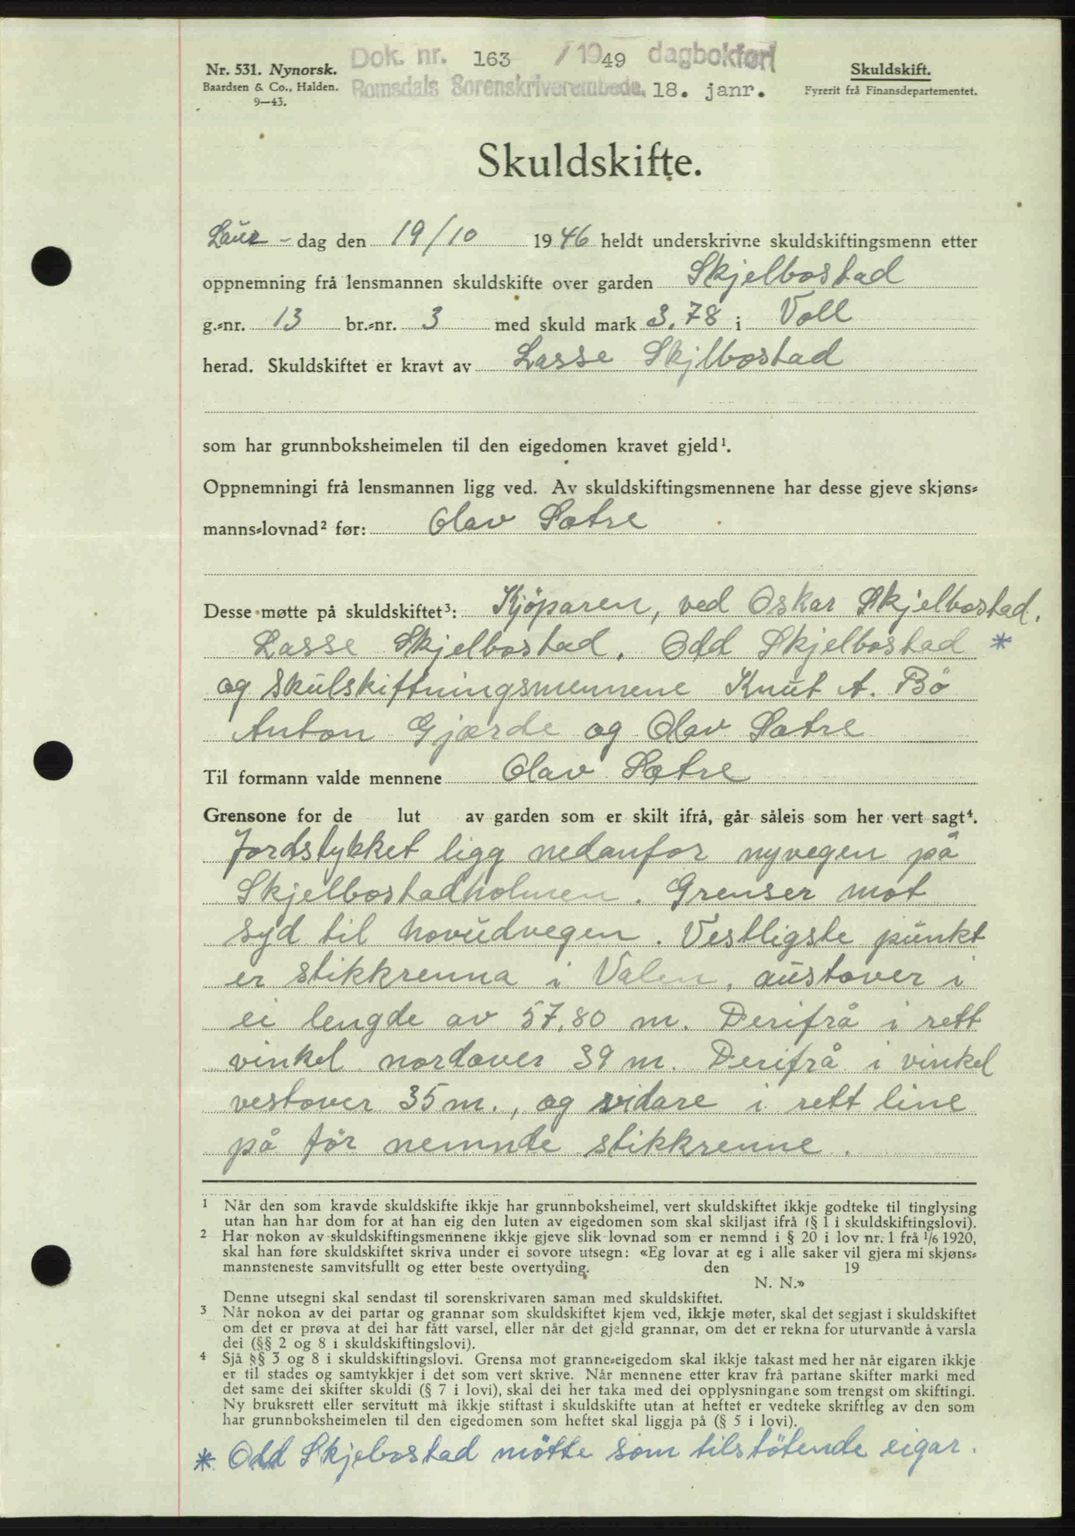 Nr. 531. Nynorsk.
Baardsen & Co., Halden.
9—43.
Dok. nr. 163 /1949 dagbokført
Romsdals Sorenskriverembede, 18. janr.
Skuldskift.
Fyrerit frå Finansdepartementet.
Skuldskifte.
Laur - dag den 19/10 1946 heldt underskrivne skuldskiftingsmenn etter
oppnemning frå lensmannen skuldskifte over garden Skjelbostad
g.-nr. 13 br.-nr. 3 med skuld mark 3.78 i Voll
herad. Skuldskiftet er kravt av Lasse Skjelbostad
som har grunnboksheimelen til den eigedomen kravet gjeld¹.
Oppnemningi frå lensmannen ligg ved. Av skuldskiftingsmennene har desse gjeve skjøns-
manns-lovnad² før: Olav Sætre
Desse møtte på skuldskiftet³: Kjöparen, ved Oskar Skjelbostad.
Lasse Skjelbostad. Odd Skjelbostad *
og skulskiftningsmennene Knut A. Bö
Anton Gjærde og Olav Sætre
Til formann valde mennene Olav Sætre
Grensone for de lut av garden som er skilt ifrå, går såleis som her vert sagt⁴.
Jordstykket ligg nedanfor nyvegen på
Skjelbostadholmen. Grenser mot
syd til hovudvegen. Vestligste punkt
er stikkrenna i Valen, austover i
ei lengde av 57,80 m. Derifrå i rett
vinkel nordover 39 m. Derifrå i vinkel
vestover 35 m., og vidare i rett line
på för nemnde stikkrenne.
¹ Når den som kravde skuldskifte ikkje har grunnboksheimel, vert skuldskiftet ikkje godteke til tinglysing
utan han har dom for at han eig den luten av eigedomen som skal skiljast ifrå (§ 1 i skuldskiftingslovi).
² Har nokon av skuldskiftingsmennene ikkje gjeve slik lovnad som er nemnd i § 20 i lov nr. 1 frå 1/6 1920,
skal han føre skuldskiftet skriva under ei sovore utsegn: «Eg lovar at eg i alle saker vil gjera mi skjøns-
mannsteneste samvitsfullt og etter beste overtyding. den 19
N. N.»
Denne utsegni skal sendast til sorenskrivaren saman med skuldskiftet.
³ Når nokon av dei partar og grannar som skuldskiftet kjem ved, ikkje møter, skal det segjast i skuldskiftet
om det er prøva at dei har fått varsel, eller når det gjeld grannar, om det er rekna for uturvande å varsla
dei (§§ 2 og 8 i skuldskiftingslovi).
⁴ Sjå §§ 3 og 8 i skuldskiftingslovi. Grensa mot granne-eigedom skal ikkje takast med her når eigaren ikkje
er til stades og samtykkjer i det som vert skrive. Når mennene etter krav frå partane skifter marki med
det same dei skifter skuldi (§ 7 i lovi), skal dei her taka med dei opplysningane som trengst om skiftingi.
Ny bruksrett eller servitutt må ikkje stiftast i skuldskifte utan at heftet er vedteke skriftleg av den som
har grunnboksheimelen til den eigedomen som heftet skal liggja på (§ 5 i lovi).
* Odd Skjebostad mötte som tilstötende eigar.